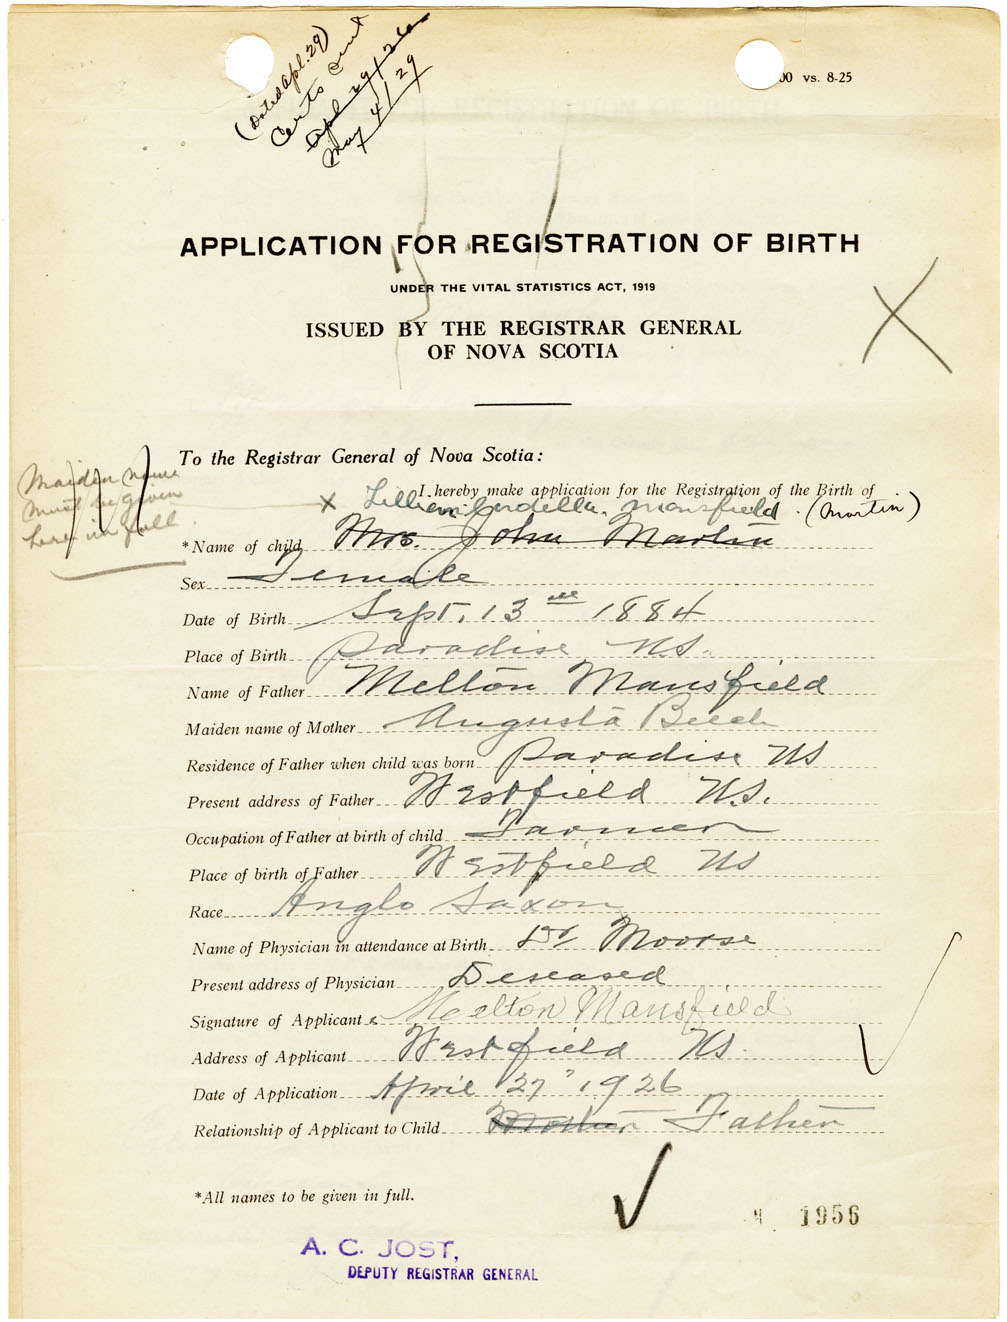 (Dated Apl. 29)
Certs sent
Apl 29/26
May 4/29
00 vs. 8-25
APPLICATION FOR REGISTRATION OF BIRTH
UNDER THE VITAL STATISTICS ACT, 1919
ISSUED BY THE REGISTRAR GENERAL
OF NOVA SCOTIA
To the Registrar General of Nova Scotia:
Maiden name
must be given
here in full
I hereby make application for the Registration of the Birth of
x Lillian Cordella Mansfield. (Martin)
*Name of child Mrs. John Martin
Sex Female
Date of Birth Sept. 13th 1884
Place of Birth Paradise N.S.
Name of Father Melton Mansfield
Maiden name of Mother Augusta Beech
Residence of Father when child was born Paradise NS
Present address of Father Westfield N.S.
Occupation of Father at birth of child Farmer
Place of birth of Father Westfield NS
Race Anglo Saxon
Name of Physician in attendance at Birth Dr Moorse
Present address of Physician Deseased
Signature of Applicant Melton Mansfield
Address of Applicant Westfield NS.
Date of Application April 27" 1926
Relationship of Applicant to Child Mother Father
*All names to be given in full.
1956
A. C. JOST,
DEPUTY REGISTRAR GENERAL